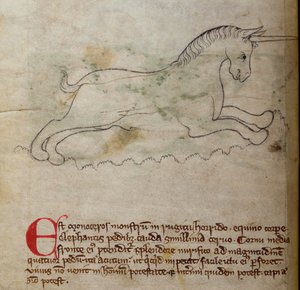 Est monoceros monstrũ mugitu horrido · equino corpe
elephantis pedibʒ cauda simillima ceruo · Cornu media
fronte ei ptendit splendore mirifico ad magnitudinem
quatuor pedum ita acutum ut quicqd impetat facile ictu ei pforet
uiuus nõ uenit in homin̄ potestatẽ ⁊ interimi quidem potest capi
nõ potest.